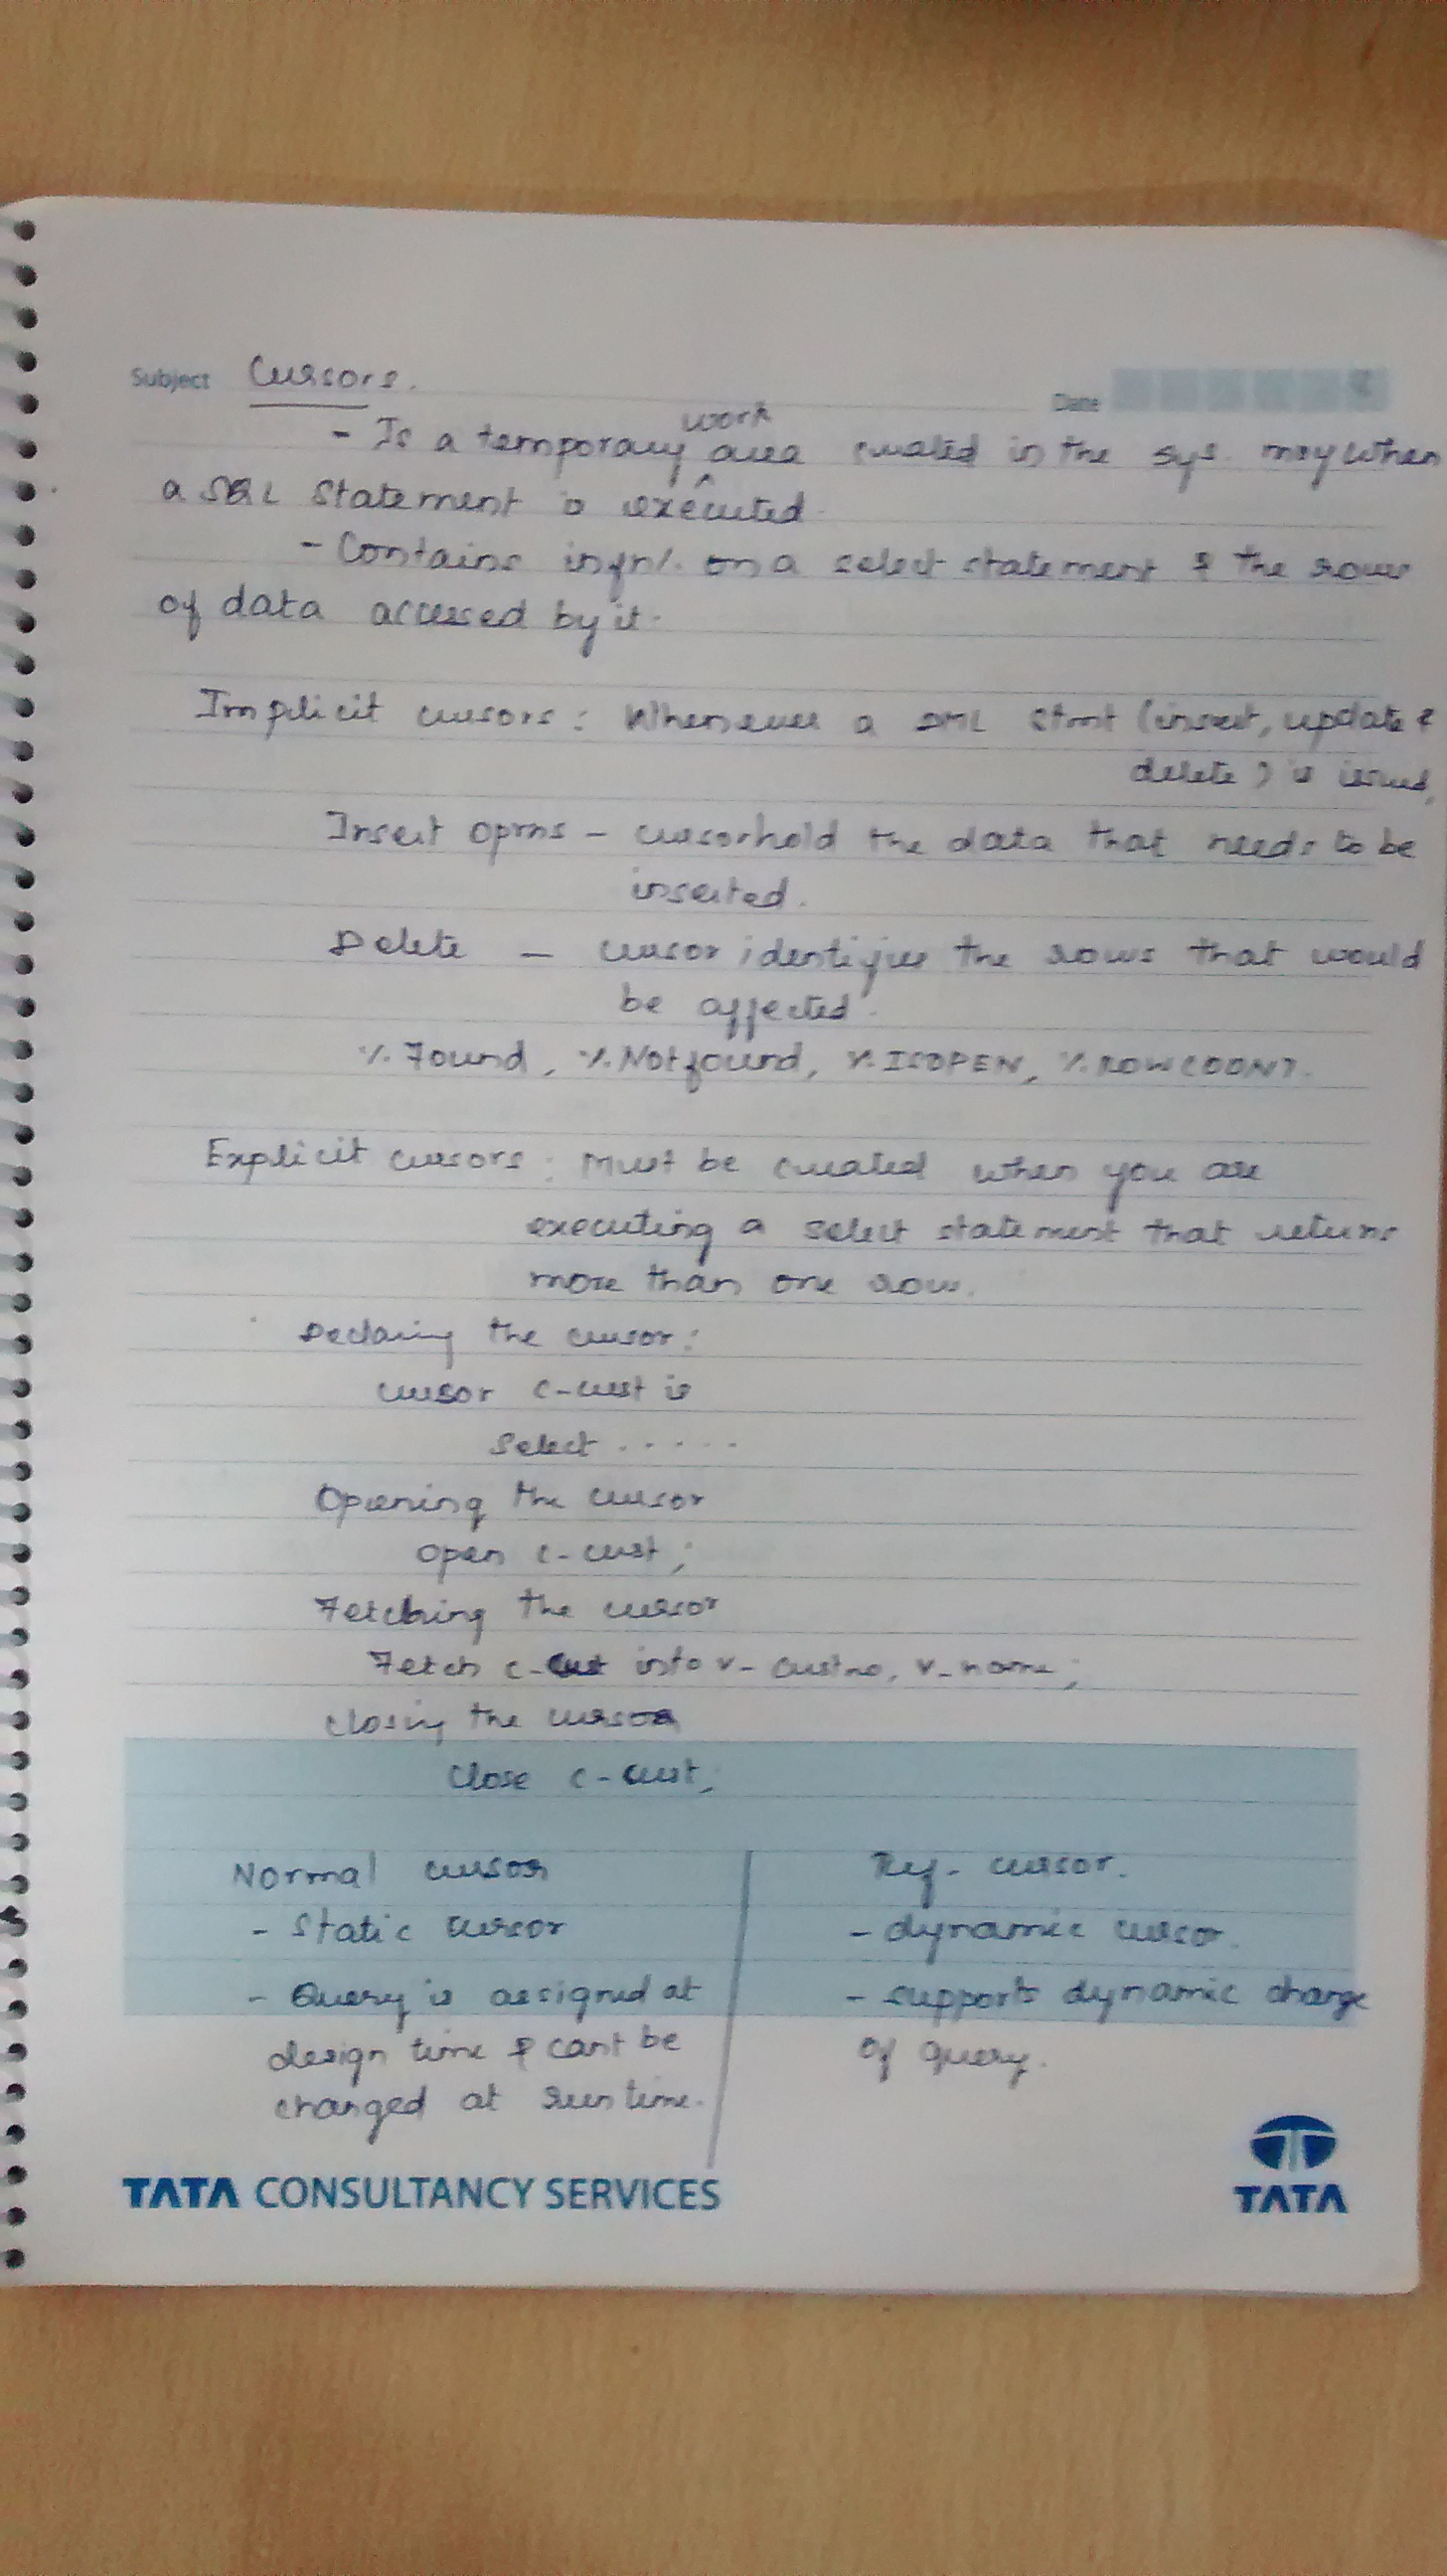 Subject Cursors.
Date
- Is a temporary work area created in the sys. mry when
a SQL statement is executed
- Contains infn/. on a select statement & the rows
of data accessed by it.
Implicit cursors : Whenever a DML stmt (insert, update &
delete) is issued,
Insert oprns - cursor hold the data that needs to be
inserted.
Delete - cursor identifies the rows that would
be affected.
%Found, %Notfound, %ISOPEN, %ROWCOUNT.
Explicit cursors : Must be created when you are
executing a select statement that returns
more than one row.
Declaring the cursor:
cursor c-cust is
Select .....
Opening the cursor
open c-cust;
Fetching the cursor
Fetch c-cust into v-custno, v-name;
closing the cursor
close c-cust;
Normal cursor | Ref. cursor.
- Static cursor - dynamic cursor.
- Query is assigned at - supports dynamic change
design time & cant be of query.
changed at run time.
TATA CONSULTANCY SERVICES
TATA